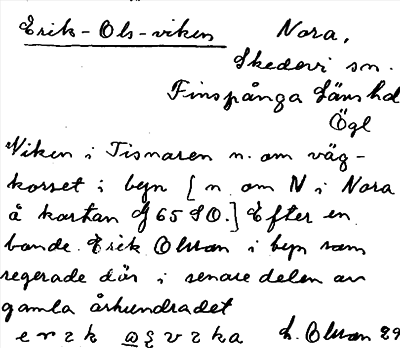 Erik-Ols-viken Nora,
Skedevi sn.
Finspånga Länshd
Ögl
Viken i Tisnaren n. om väg-
korset i byn [n om N i Nora
å kartan J 65 S O.] Efter en
bonde Erik Olsson i byn som
regerade där i senare delen av
gamla århundradet
L. Olsson 29